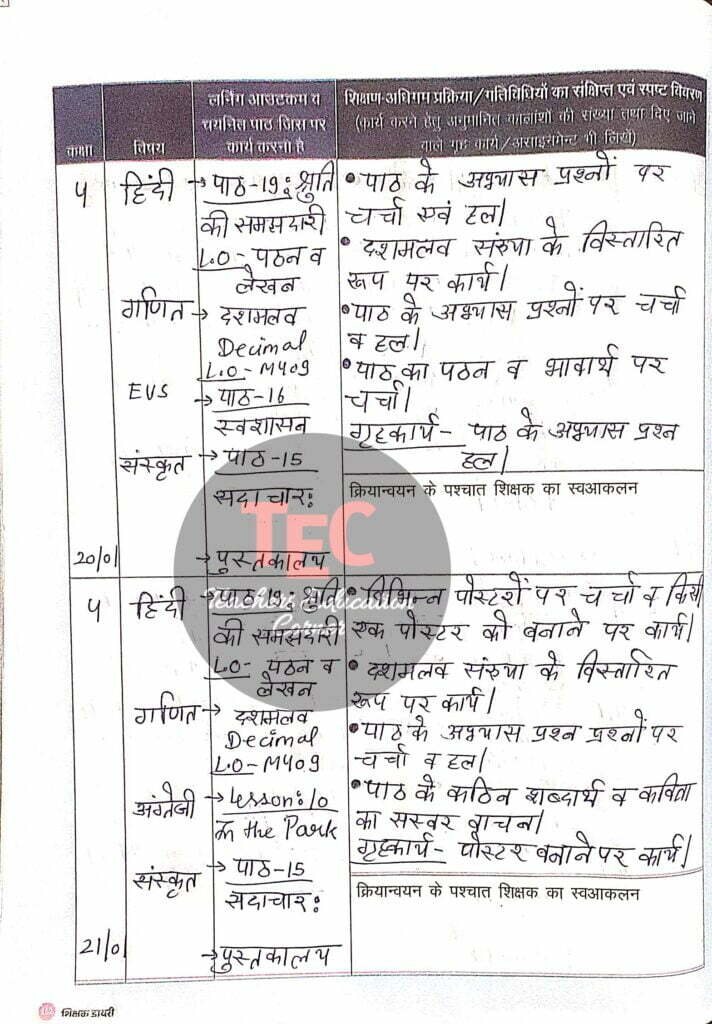 कक्षा
विषय
लर्निंग आउटकम व
चयनित पाठ जिस पर
कार्य करना है
शिक्षण-अधिगम प्रक्रिया/गतिविधियों का संक्षिप्त एवं स्पष्ट विवरण
(कार्य करने हेतु अनुमानित कालांशों की संख्या तथा दिए जाने
वाले गृह कार्य/असाइनमेंट भी लिखें)
५
हिंदी
→ पाठ-19: श्रुति
की समझदारी
L.O - पठन व
लेखन
गणित
→ दशमलव
Decimal
L.O - M409
EVS
→ पाठ-16
स्वशासन
संस्कृत
→ पाठ-15
सदाचारः
→ पुस्तकालय
20/01
• पाठ के अभ्यास प्रश्नों पर
चर्चा एवं हल।
• दशमलव संख्या के विस्तारित
रूप पर कार्य।
• पाठ के अभ्यास प्रश्नों पर चर्चा
व हल।
• पाठ का पठन व भावार्थ पर
चर्चा।
गृहकार्य - पाठ के अभ्यास प्रश्न
हल।
क्रियान्वयन के पश्चात शिक्षक का स्वआकलन
TEC
Teachers Education
Corner
५
हिंदी
पाठ 19: श्रुति
की समझदारी
L.O - पठन व
लेखन
गणित
→ दशमलव
Decimal
L.O - M409
अंग्रेजी
→ Lesson: 10
In the Park
संस्कृत
→ पाठ-15
सदाचारः
→ पुस्तकालय
21/01
• विभिन्न पोस्टरों पर चर्चा व किसी
एक पोस्टर को बनाने पर कार्य।
• दशमलव संख्या के विस्तारित
रूप पर कार्य।
• पाठ के अभ्यास प्रश्न प्रश्नों पर
चर्चा व हल।
• पाठ के कठिन शब्दार्थ व कविता
का सस्वर वाचन।
गृहकार्य - पोस्टर बनाने पर कार्य।
क्रियान्वयन के पश्चात शिक्षक का स्वआकलन
शिक्षक डायरी